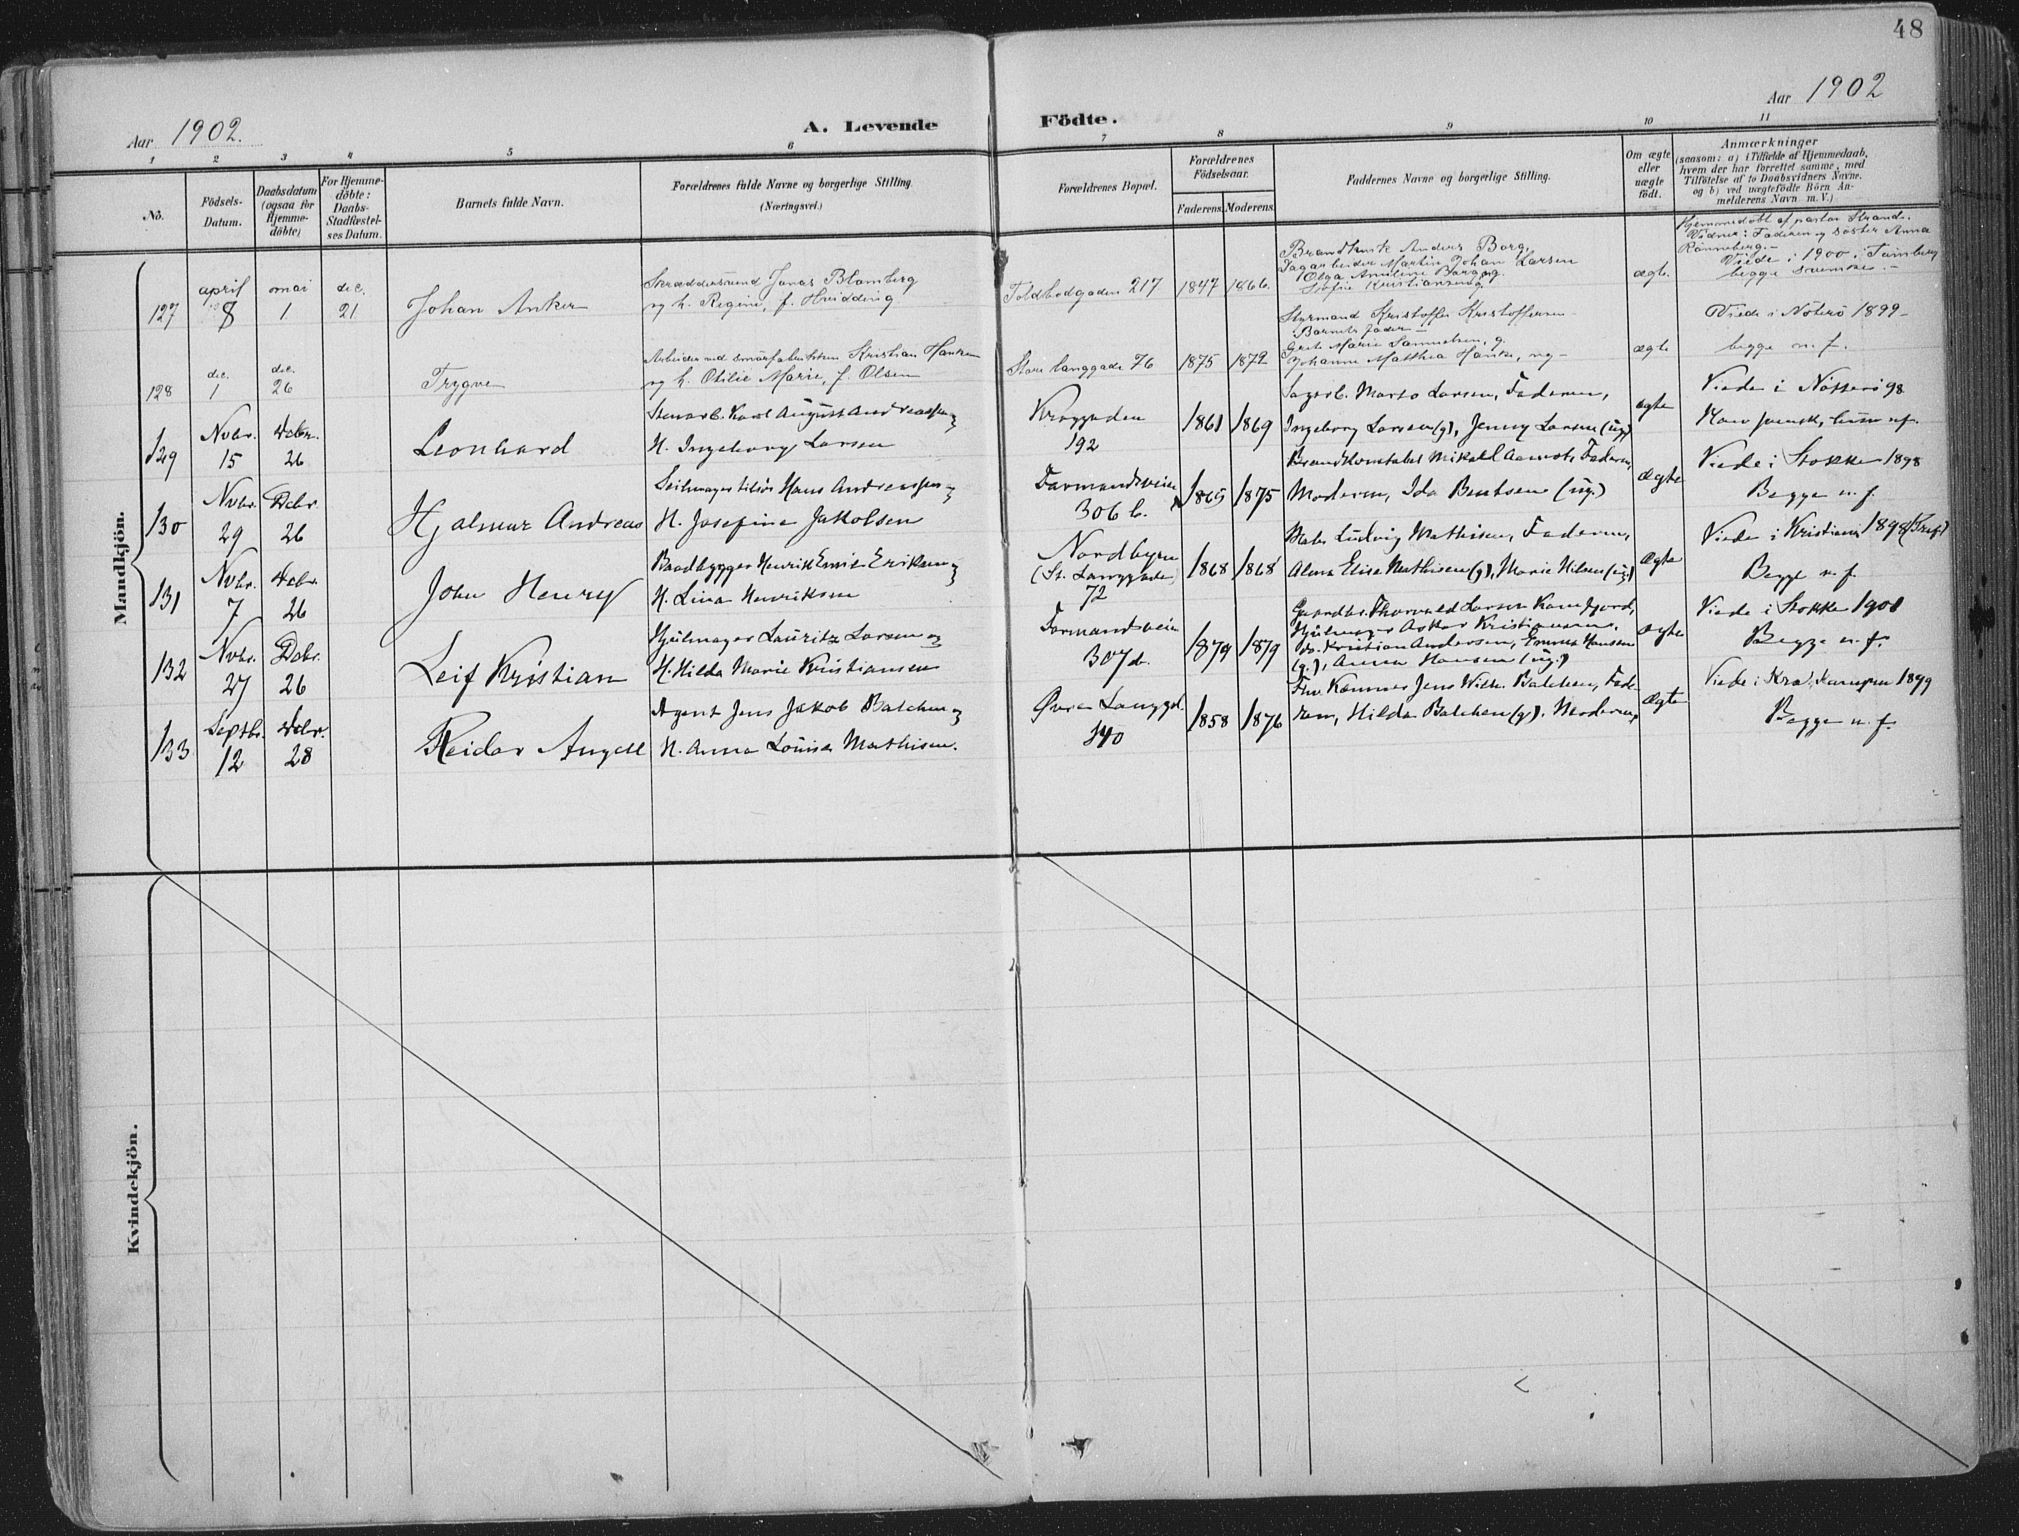 48
Aar 1902.
A. Levende Födte.
Aar 1902
1 2 3 4 5 6 7 8 9 10 11
Nò.
Födsels-
Datum.
Daabsdatum
(ogsaa for
Hjemme-
döbte)
For Hjemme-
döbte:
Daabs-
Stadfæstel-
ses Datum.
Barnets fulde Navn.
Forældrenes fulde Navne og borgerlige Stilling
(Næringsvei.)
Forældrenes Bopæl.
Forældrenes
Födselsaar.
Faderens. Moderens.
Faddernes Navne og borgerlige Stilling.
Om ægte
eller
uægte
födt.
Anmærkninger
(saasom: a) i Tilfælde af Hjemmedaab,
hvem der har forrettet samme, med
Tilföielse af to Daabsvidners Navne,
og b) ved uægtefödte Börn An-
melderens Navn m. V.)
Mandkjön.
127
april
8
mai
1
dec.
21
Johan Anker
Skræddersvend Jonas Blomberg
og h. Regine, f. Hvidding
Toldbodgaden 217
1847 1866.
Anders Borg,
Dagarbeider Martin Johan Larsen
Olga Borg, g.
Sofie Kristiansen
ægte.
Hjemmedöbt af pastor Strand.
Vidner: Faderen og söster Anna
Rönneberg.–
Viede i 1900 i Tunsberg
begge svenske.–
128
dec.
1
dec.
26
Trygve
Arbeider ved smörfabrikken Kristian Hansen
og h. Otilie Marie, f. Olsen
Store langgade 76
1875 1872
Styrmand Kristoffer Kristoffersen
Barnets fader –
Grete Marie Samuelsen, g.
Johanne Matthea Hansen, ug –
ægte
Viede i Nöterö 1899–
begge n. f.
129
Novbr.
15
Decbr.
26
Leonhard
Stenarb. Karl August Andreassen og
H. Ingeborg Larsen
Kroggaden
192
1861 1869
Sagarb. Larsen, Faderen,
Ingeborg Larsen (g), Jenny Larsen (ug)
ægte
Viede i Nötterö 98
Han svensk, hun n.f.
130
Novbr.
29
Decbr.
26
Hjalmar Andreas
Seilmager Hans Andreassen og
H. Josefine Jakobsen
Farmandsveien
306 b.
1865 1875
Brandkonstabel Mikal Aamot, Faderen,
Moderen, Ida Bentsen (ug.)
ægte
Viede i Stokke 1898
Begge n. f.
131
Novbr.
7
Decbr.
26
John Henry
Baadbygger Henrik Emil Eriksen og
H. Lina Henriksen
Nordbyen
(St. Langgade)
72
1868 1868
Ludvig Mathisen, Faderen,
Alma Elise Mathisen (g), Marie Nilsen (ug.)
ægte
Viede i Kristiania 1898
Begge n. f.
132
Novbr.
27
Decbr.
26
Leif Kristian
Hjulmager Lauritz Larsen og
H. Hilda Marie Kristiansen
Farmandsveien
307 d.
1879 1879
Thorvald Larsen
Hjulmager Kristiansen,
do. Kristian Andersen, Emma Hansen
(g.), Anna Hansen (ug.)
ægte
Viede i Stokke 1901
Begge n. f.
133
Septbr.
12
Decbr.
28
Reidar Angell
Agent Jens Jakob Balchen og
H. Anna Louise Mathisen.
Övre Langgd.
140
1858 1876
Jens Wilh. Balchen, Fade-
ren, Hilda Balchen (g). Moderen,
ægte
Viede i 1899
Begge n. f.
Kvindekjön.